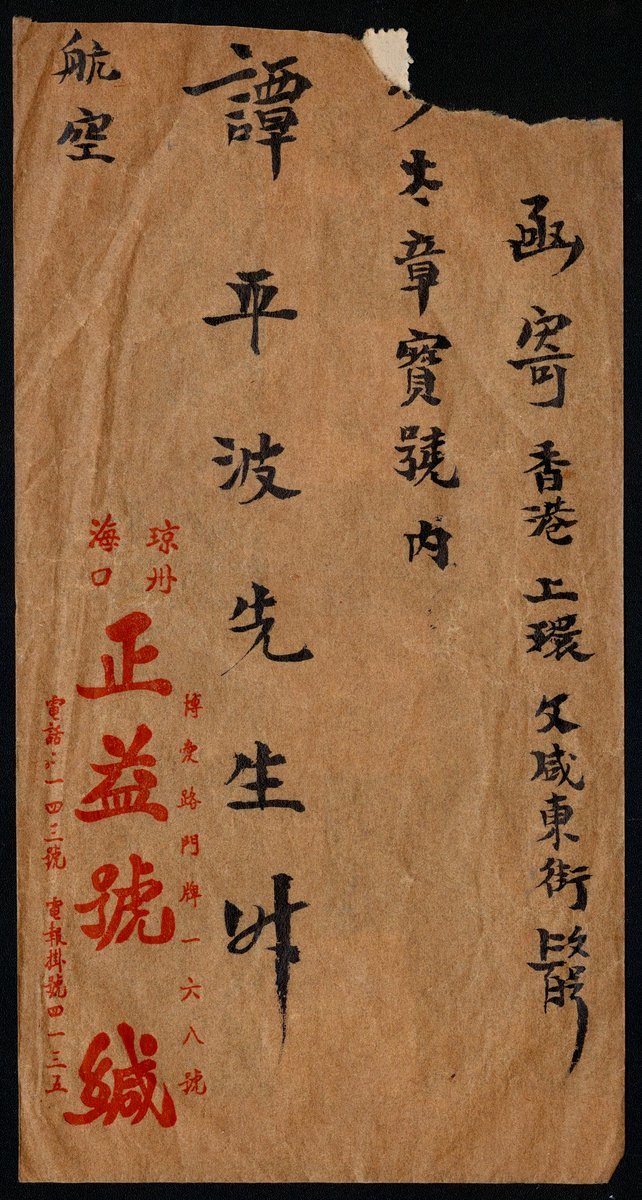 函寄香港上環文咸東街
章寶號内
譚平波先生
航空
琼州
海口
博愛路門牌一六八號
正益號緘
電話：一四三號 電報掛號四一三五